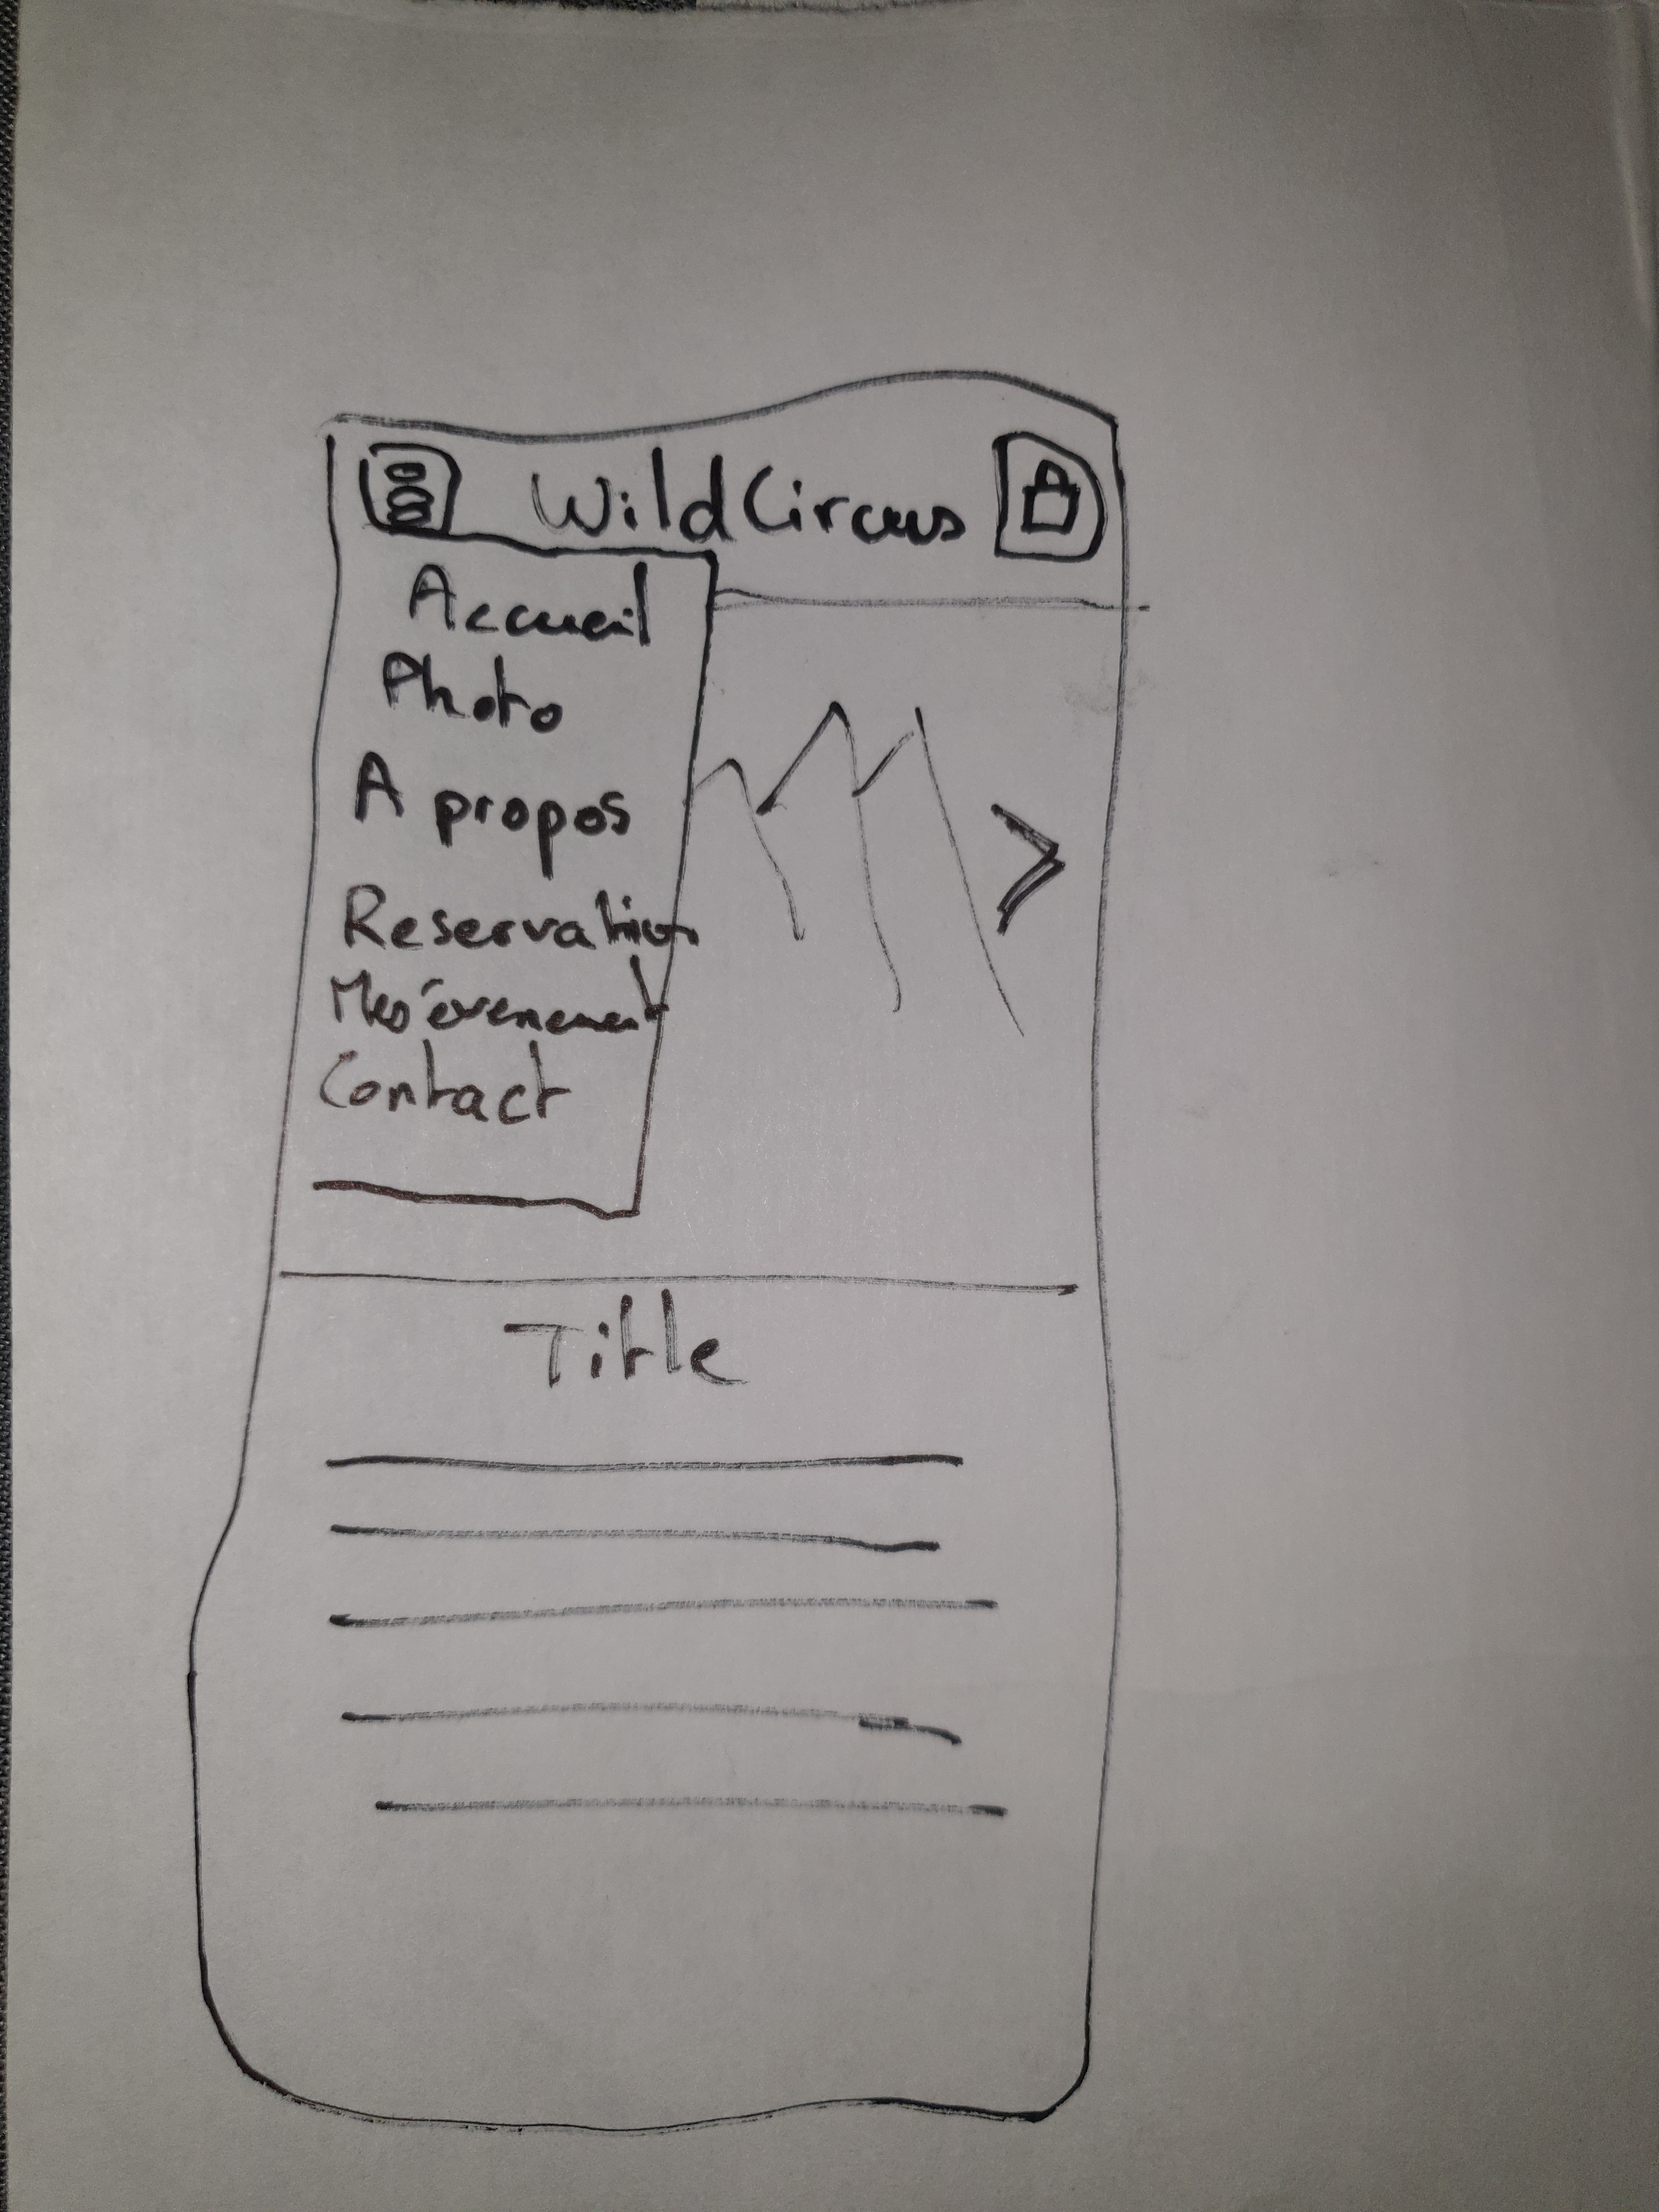 WildCircus
Accueil
Photo
A propos
Reservation
Mes évenement
Contact
Title